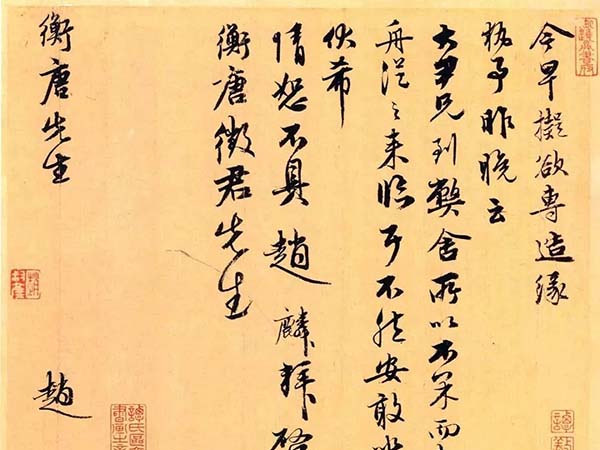 今早擬欲專造緣
執事昨晚云
大尹兄到弊舍所以不果而
舟從之來臨耳不然安敢
伏希
情恕不具趙麟拜啓
衡唐徵君先生
衡唐先生
趙